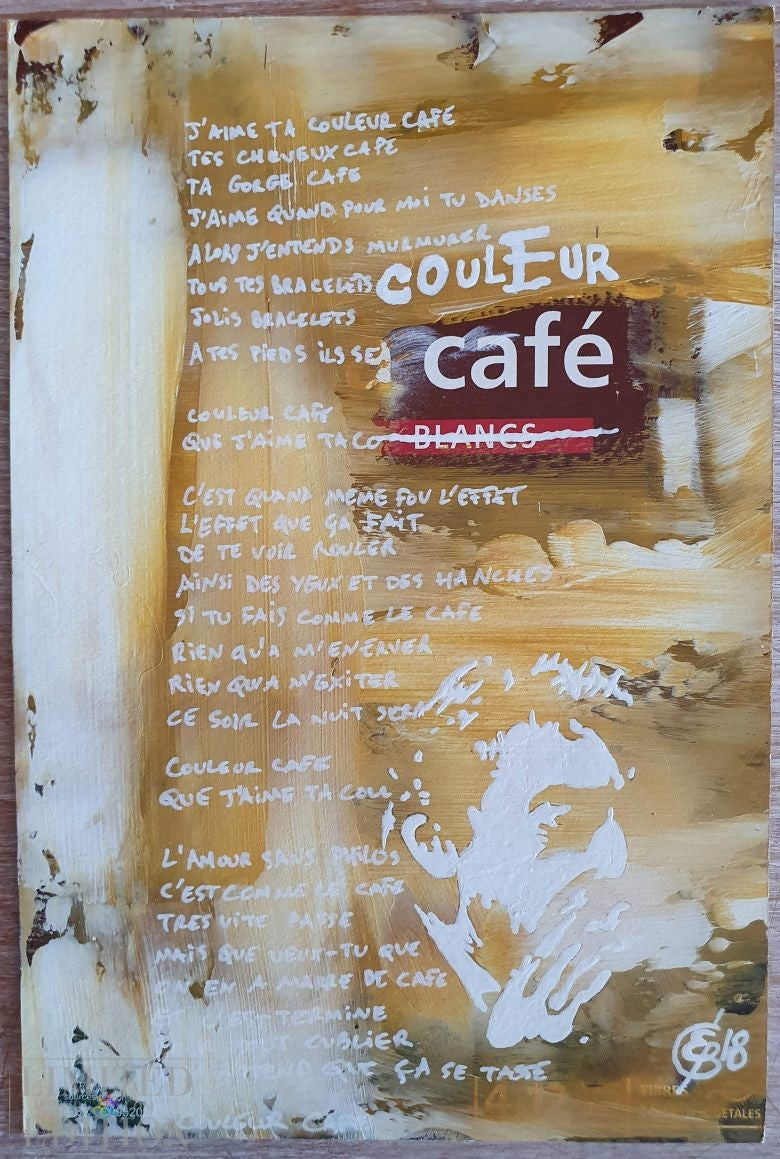 J'AIME TA COULEUR CAFE
TES CHEVEUX CAFE
TA GORGE CAFE
J'AIME QUAND POUR MOI TU DANSES
ALORS J'ENTENDS MURMURER
TOUS TES BRACELETS
JOLIS BRACELETS
A TES PIEDS ILS SE
COULEUR
café
BLANCS
COULEUR CAFE
QUE J'AIME TA CO
C'EST QUAND MEME FOU L'EFFET
L'EFFET QUE ÇA FAIT
DE TE VOIR ROULER
AINSI DES YEUX ET DES HANCHES
SI TU FAIS COMME LE CAFE
RIEN QU'A M'ENERVER
RIEN QU'A M'EXITER
CE SOIR LA NUIT SERA
COULEUR CAFE
QUE J'AIME TA COUL
L'AMOUR SANS PHILOS
C'EST COMME LE CAFE
TRES VITE PASSE
MAIS QUE VEUX-TU QUE
EN A MARRE DE CAFE
C'EST TERMINE
OUBLIER
QUE ÇA SE TASSE
18
LIMITED
EDITION
COULEUR CAFE